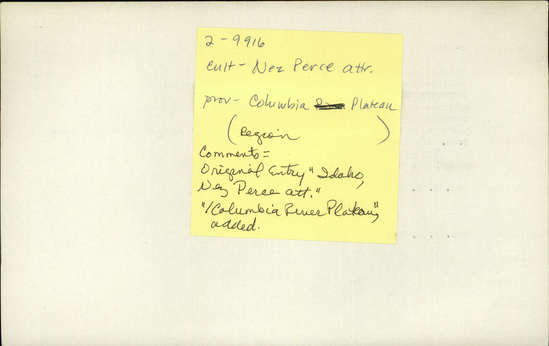 2-9916
cult- Nez Perce attr.
prov- Columbia Plateau
(Region )
Comments=
Original Entry "Idaho,
Nez Perce att."
"/Columbia River Plateau",
added.